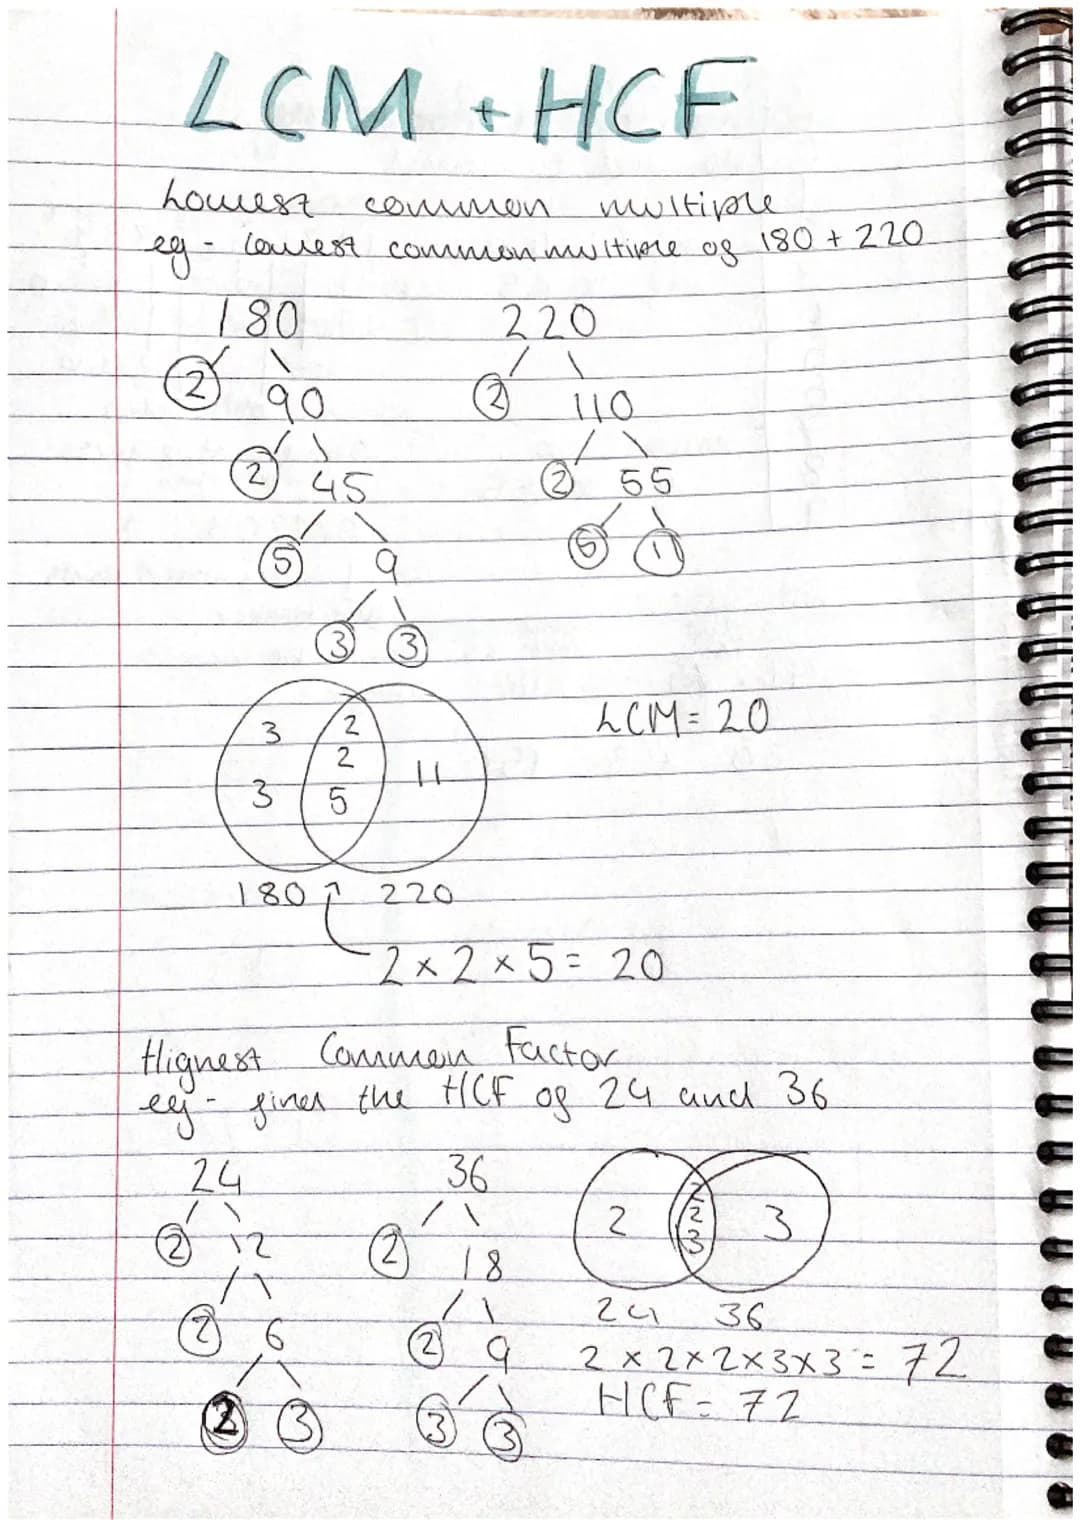 LCM + HCF
Lowest common multiple
eg - lowest common multiple of 180 + 220
180 220
2 90 2 110
2 45 2 55
5 9 5 11
3 3
3 2 LCM = 20
2 11
3 5
180 220
2 x 2 x 5 = 20
Highest Common Factor
eg - find the HCF of 24 and 36
24 36
2 12 2 18
2 2 2 3 3
24 36
2 6 2 9
2 x 2 x 2 x 3 x 3 = 72
2 3 3 3
HCF = 72